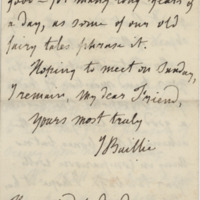 good — for many long years &
a day, as some of our old
fairy tales phrase it.
Hoping to meet on Sunday,
I remain, my dear Friend,
Yours most truly
J Baillie